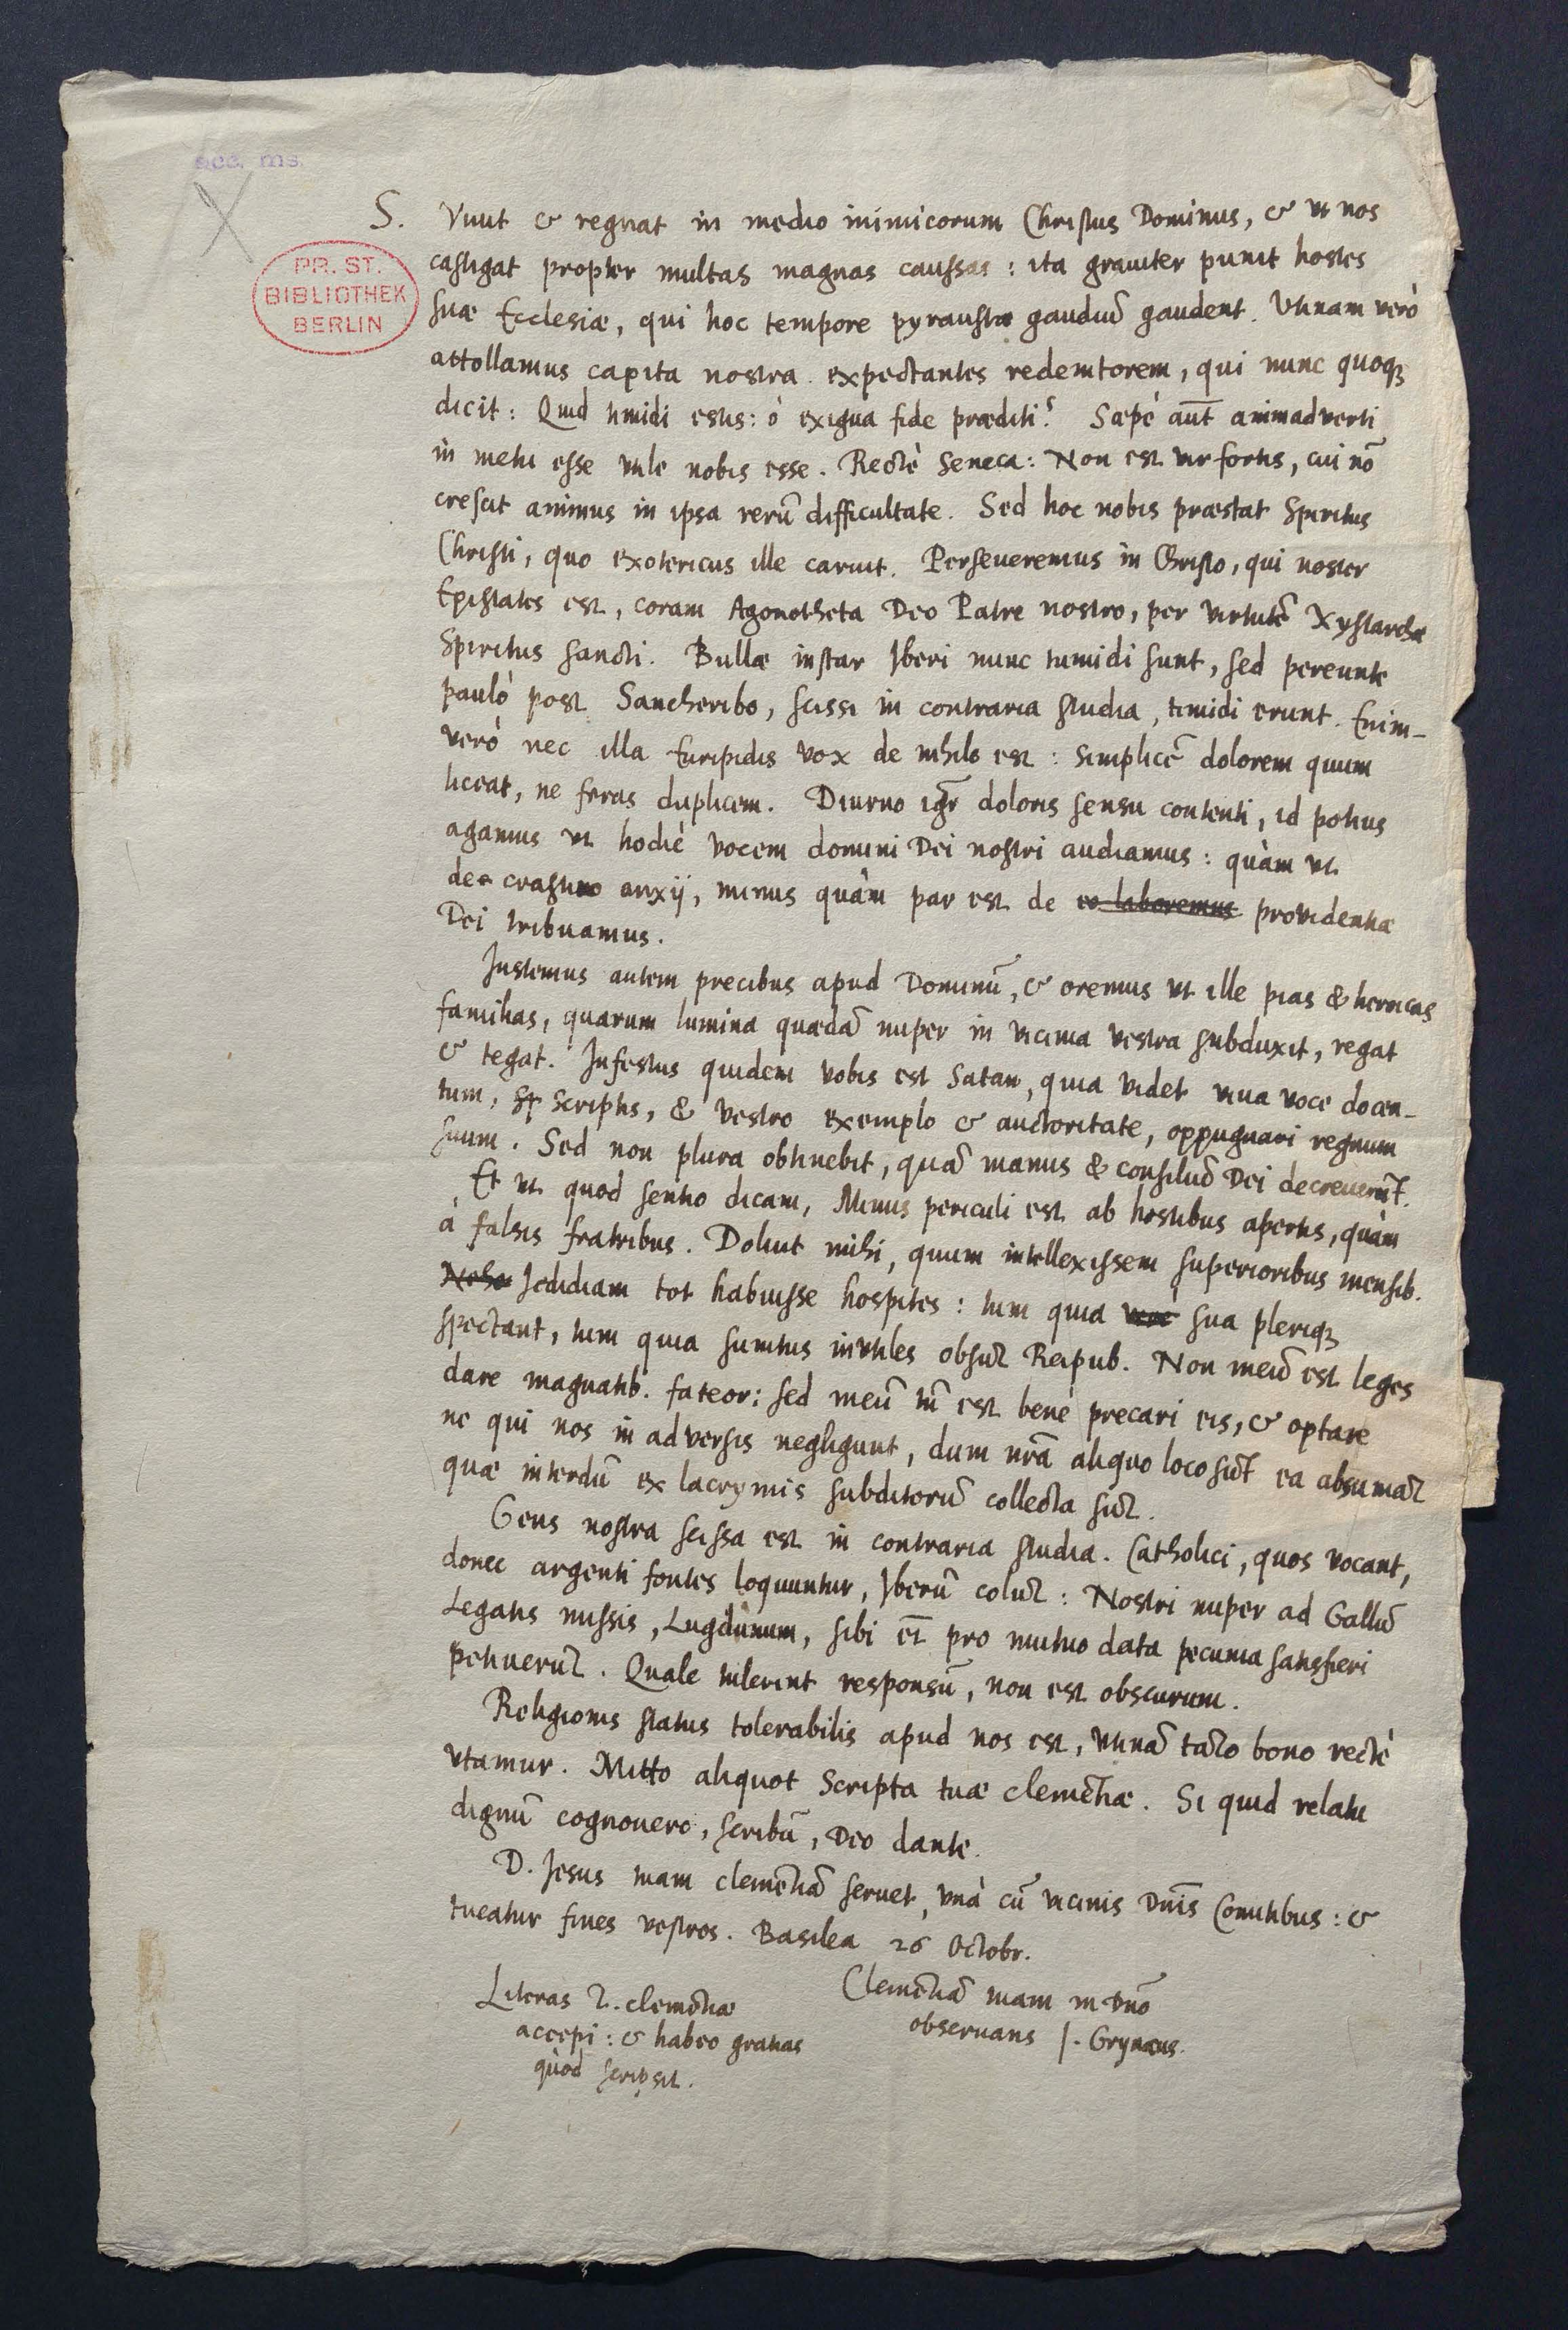 acc. ms.
PR. ST.
BIBLIOTHEK
BERLIN
S. Viuit & regnat in medio inimicorum Christus Dominus, & vt nos
castigat propter multas magnas caussas : ita grauiter punit hostes
suæ Ecclesiæ, qui hoc tempore pyraustæ gaudiū gaudent. Vtinam verò
attollamus capita nostra expectantes redemtorem, qui nunc quoqꝫ
dicit: Quid timidi estis: ô exigua fide præditi? Sæpè aūt animadverti
in metu esse vtile nobis esse. Rectè Seneca: Non est vir fortis, cui nō
crescit animus in ipsa rerū difficultate. Sed hoc nobis præstat Spiritus
Christi, quo exotericus ille caruit. Perseueremus in Christo, qui noster
Epistates est, coram Agonotheta Deo Patre nostro, per virtutē Xystarchæ
Spiritus sancti. Bullæ instar Iberi nunc tumidi sunt, sed pereunte
paulò post Sancheribo, scissi in contraria studia, timidi erunt. Enim-
verò nec illa Euripidis vox de nihilo est : simplicē dolorem quum
liceat, ne feras duplicem. Diurno igr̄ doloris sensu contenti, id potius
agamus vt hodiè vocem domini Dei nostri audiamus : quàm vt
de crastino anxij, minus quàm par est de eo laboremus prouidentiæ
Dei tribuamus.
Instemus autem precibus apud Dominū, & oremus vt ille pias & heroicas
familias, quarum lumina quædā nuper in vicinia vestra subduxit, regat
& tegat. Infestus quidem vobis est Satan, quia videt viua voce docen-
tum, scriptis, & vestro exemplo & auctoritate, oppugnari regnum
suum. Sed non plura obtinebit, quā manus & consiliū Dei decreuerūt.
Et vt quod sentio dicam, Minus periculi est ab hostibus apertis, quàm
à falsis fratribus. Doluit mihi, quum intellexissem superioribus mensib.
Jedidiam tot habuisse hospites : tum quia sua pleriqꝫ
spectant, tum quia sumtus inutiles obsūt Reipub. Non meū est leges
dare magnatib. fateor: sed meū tn̄ est benè precari eis, & optare
ne qui nos in adversis negligunt, dum nr̄a aliquo loco sūt ea absumāt
quæ interdū ex lacrymis subditorū collecta sūt.
Gens nostra scissa est in contraria studia. Catholici, quos vocant,
donec argenti fontes loquuntur, Iberū colūt : Nostri nuper ad Gallū
Legatis missis, Lugdunum, sibi et̄ pro mutuo data pecunia satisfieri
petiuerūt. Quale tulerint responsū, non est obscurum.
Religionis status tolerabilis apud nos est, vtinā tāto bono rectè
vtamur. Mitto aliquot Scripta tuæ clemētiæ. Si quid relatu
dignū cognouero, scribā, Deo dante.
D. Jesus tuam clemētiā seruet, vnà cū vicinis Dn̄is Comitibus : &
tueatur fines vestros. Basilea 26 Octobr.
Clemētiā tuam in Dn̄o
obseruans J. Grynæus.
Literas T. clemētiæ
accepi : & habeo gratias
quòd scripsit.